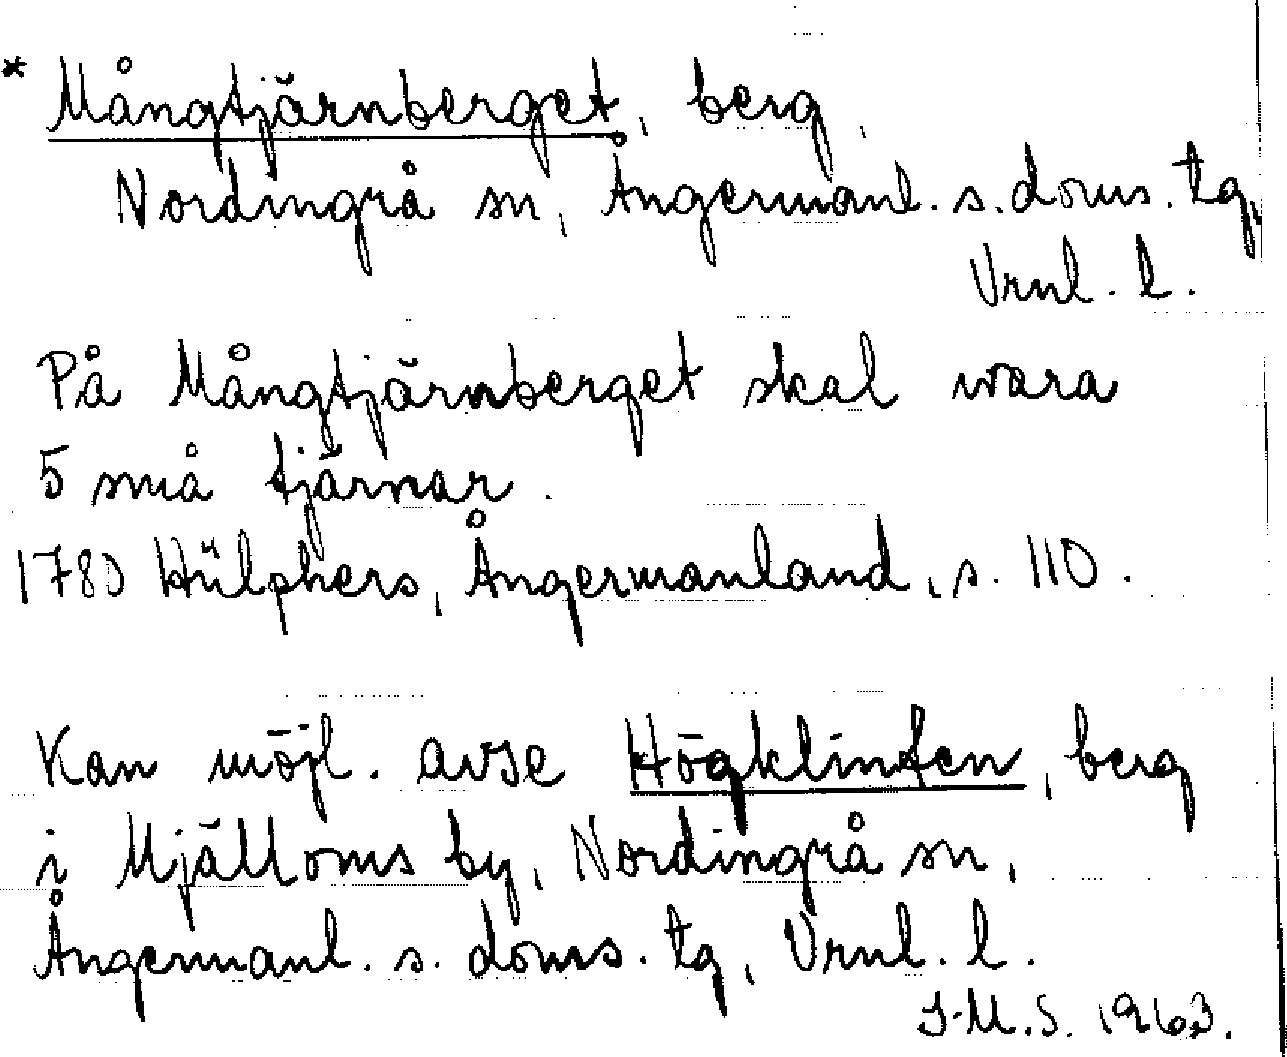 * Mångtjärnberget, berg,
Nordingrå sn, Ångermanl. s. doms. tg,
Vrnl. l.
På Mångtjärnberget skal wara
5 små tjärnar.
1780 Hülphers, Ångermanland, s. 110.
Kan möjl. avse Högklinten, berg
i Mjälloms by, Nordingrå sn,
Ångermanl. s. doms. tg, Vrnl. l.
I-M.S. 1963.